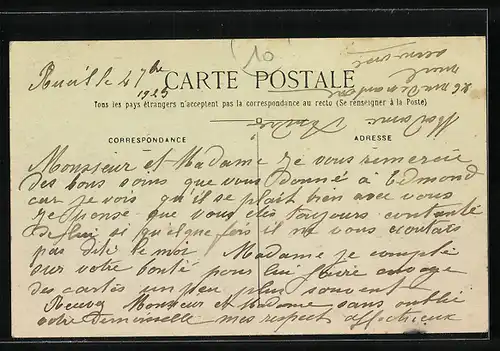 Rueil le 4 7bre
1925
10
CARTE POSTALE
Tous les pays étrangers n'acceptent pas la correspondance au recto (Se renseigner à la Poste)
CORRESPONDANCE
ADRESSE
Madame
Monsieur et Madame Je vous remercie
des bons soins que vous donné à Edmond
car je vois qu'il se plait bien avec vous
Je pense que vous etes toujours contante
de lui si quelque fois il ne vous ecoutais
pas dite le moi Madame je compte
sur votre bonté pour lui faire
des cartes un peu plus souvent
Recevez Monsieur et Madame sans oublié
votre Demoiselle mes respect affectieux